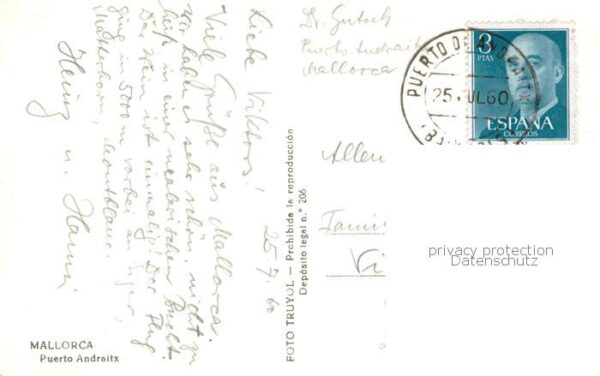 Liebe Viktors!
25.7.60
Viele Grüße aus Mallorca.
Wir haben es sehr schön, nicht zu
heiß in einer malerischen Bucht.
Der Wein ist einmalig! Der Flug
ging in 5000 m vorbei an Eiger,
Matterhorn, Montblanc.
Heinz u. Hanni
Puerto Andraitx
Mallorca
PUERTO DE ANDRAITX
25 JUL 60
3
PTAS
ESPAÑA
CORREOS
FOTO TRUYOL — Prohibida la reproducción
Depósito legal n.° 206
Famil
Vi
privacy protection
Datenschutz
MALLORCA
Puerto Andraitx